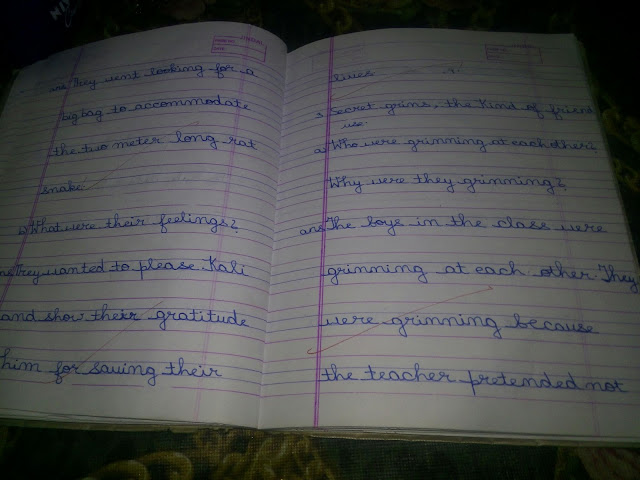 ans They went looking for a
big bag to accommodate
the two meter long rat
snake
What were their feelings?
They wanted to please Kali
and show their gratitude
him for saving their
lives
3 Secret grins, the kind of friends
use.
a. Who were grinning at each other?
Why were they grinning?
ans The boys in the class were
grinning at each other. They
were grinning because
the teacher pretended not